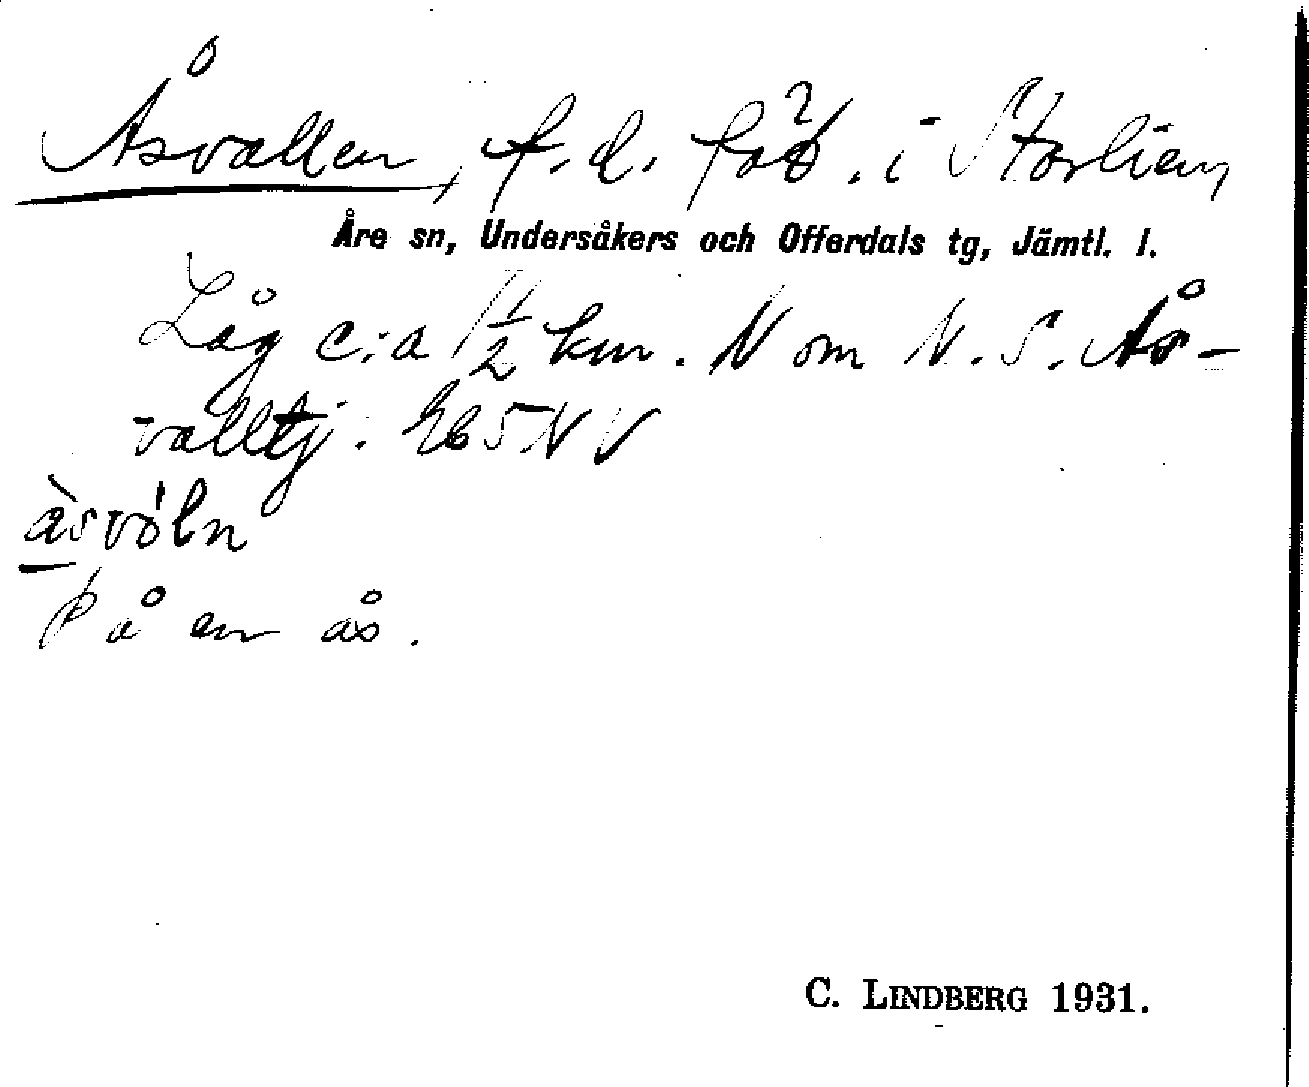 Åsvallen, f.d. fäb. i Storlien
Åre sn, Undersåkers och Offerdals tg, Jämtl. l.
Låg c:a 1 1/2 km. N om N. S. Ås-
valltj. Eb5NV
àsvöln
På en ås.
C. LINDBERG 1931.